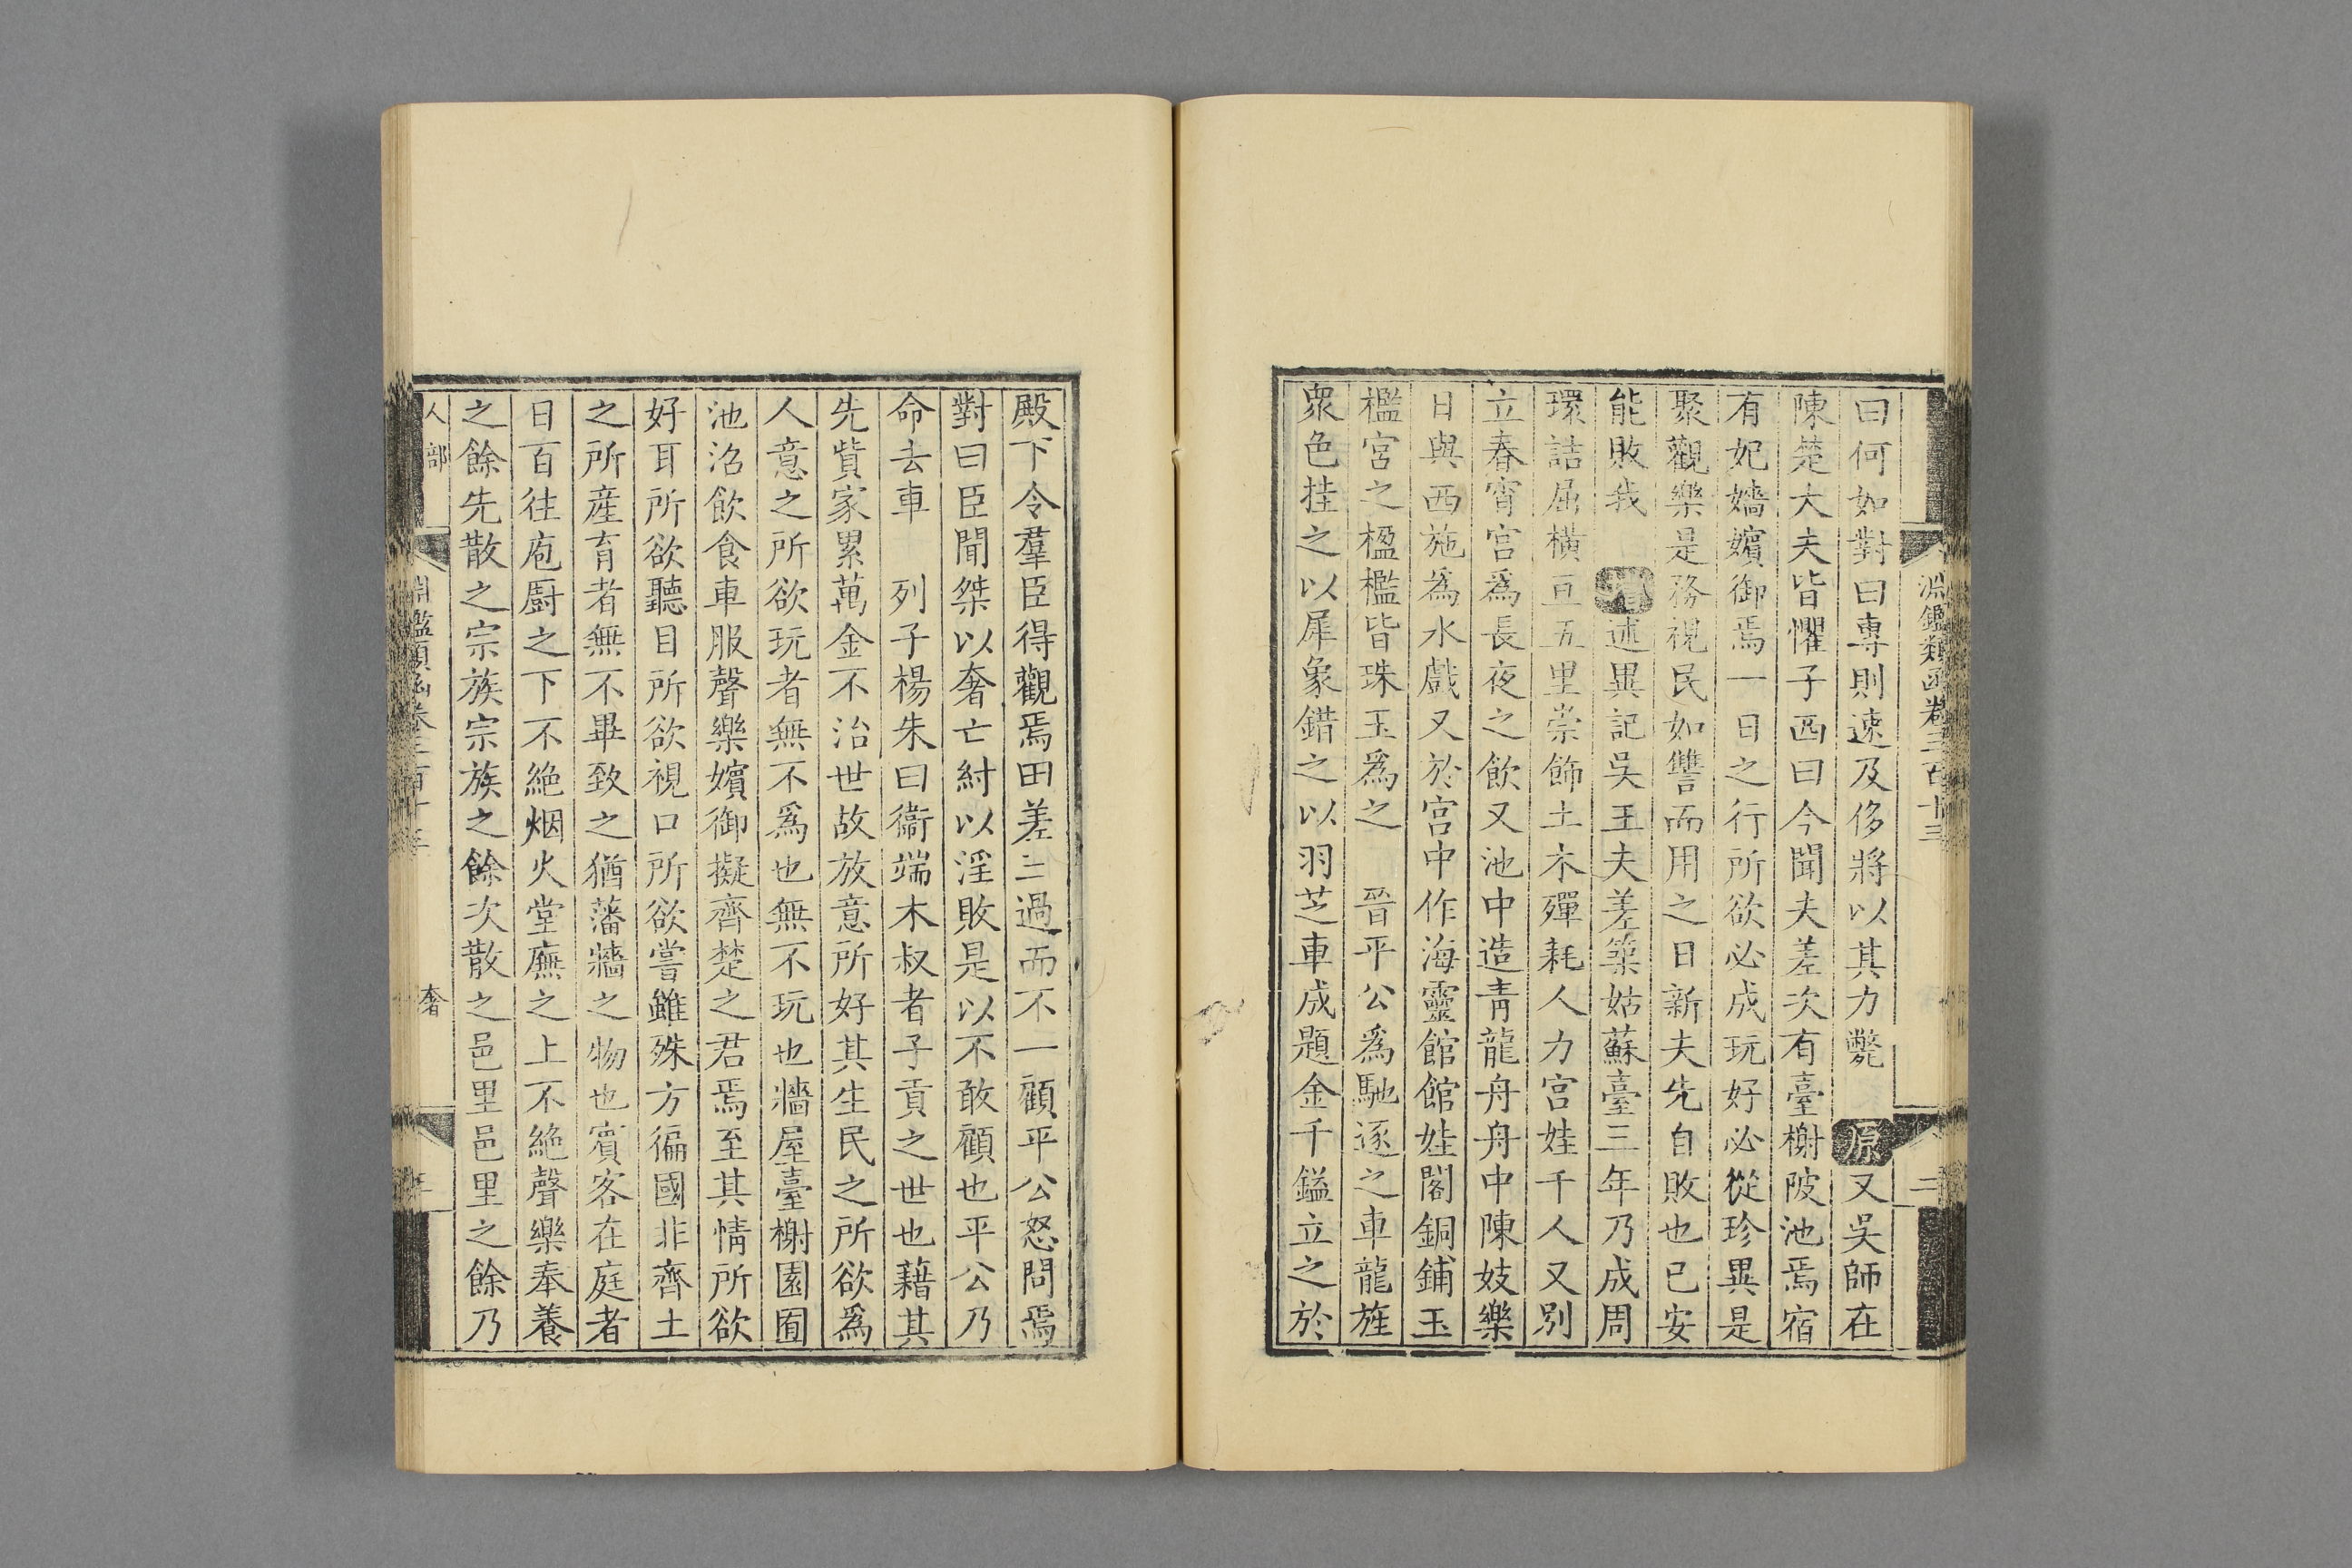 淵鑑類函卷三百十三
二
曰何如對曰專則速及侈將以其力斃 原又吳師在
陳楚大夫皆懼子西曰今聞夫差次有臺榭陂池焉宿
有妃嬙嬪御焉一日之行所欲必成玩好必從珍異是
聚觀樂是務視民如讐而用之日新夫先自敗也已安
能敗我 增述異記吳王夫差築姑蘇臺三年乃成周
環詰屈橫亘五里崇飾土木殫耗人力宮娃千人又別
立春宵宮爲長夜之飲又池中造青龍舟舟中陳妓樂
日與西施爲水戲又於宮中作海靈館館娃閣銅鋪玉
檻宮之楹檻皆珠玉爲之 晉平公爲馳逐之車龍旌
衆色挂之以犀象錯之以羽芝車成題金千鎰立之於
殿下令羣臣得觀焉田差三過而不一顧平公怒問焉
對曰臣聞桀以奢亡紂以淫敗是以不敢顧也平公乃
命去車 列子楊朱曰衞端木叔者子貢之世也藉其
先貲家累萬金不治世故放意所好其生民之所欲爲
人意之所欲玩者無不爲也無不玩也牆屋臺榭園囿
池沼飲食車服聲樂嬪御擬齊楚之君焉至其情所欲
好耳所欲聽目所欲視口所欲嘗雖殊方徧國非齊土
之所産育者無不畢致之猶藩牆之物也賓客在庭者
日百往庖廚之下不絶烟火堂廡之上不絶聲樂奉養
之餘先散之宗族宗族之餘次散之邑里邑里之餘乃
人部 淵鑑類函卷三百十三 奢